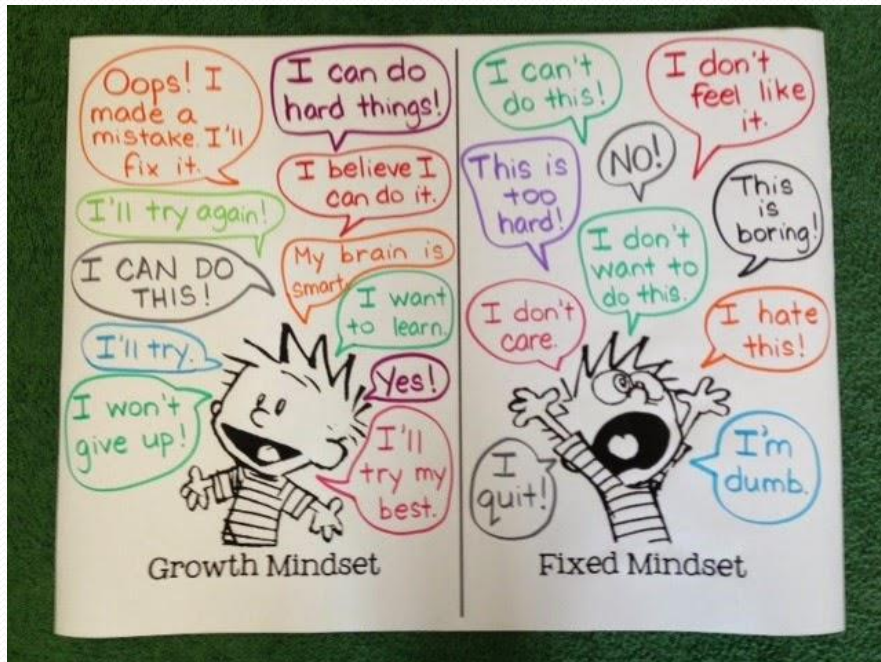 Oops! I
made a
mistake. I'll
fix it.
I can do
hard things!
I believe I
can do it.
I'll try again!
My brain is
smart.
I CAN DO
THIS!
I want
to learn.
I'll try.
Yes!
I won't
give up!
I'll
try my
best.
Growth Mindset
I can't
do this!
I don't
feel like
it.
This is
too
hard!
NO!
This
is
boring!
I don't
want to
do this.
I don't
care.
I hate
this!
I
quit!
I'm
dumb.
Fixed Mindset